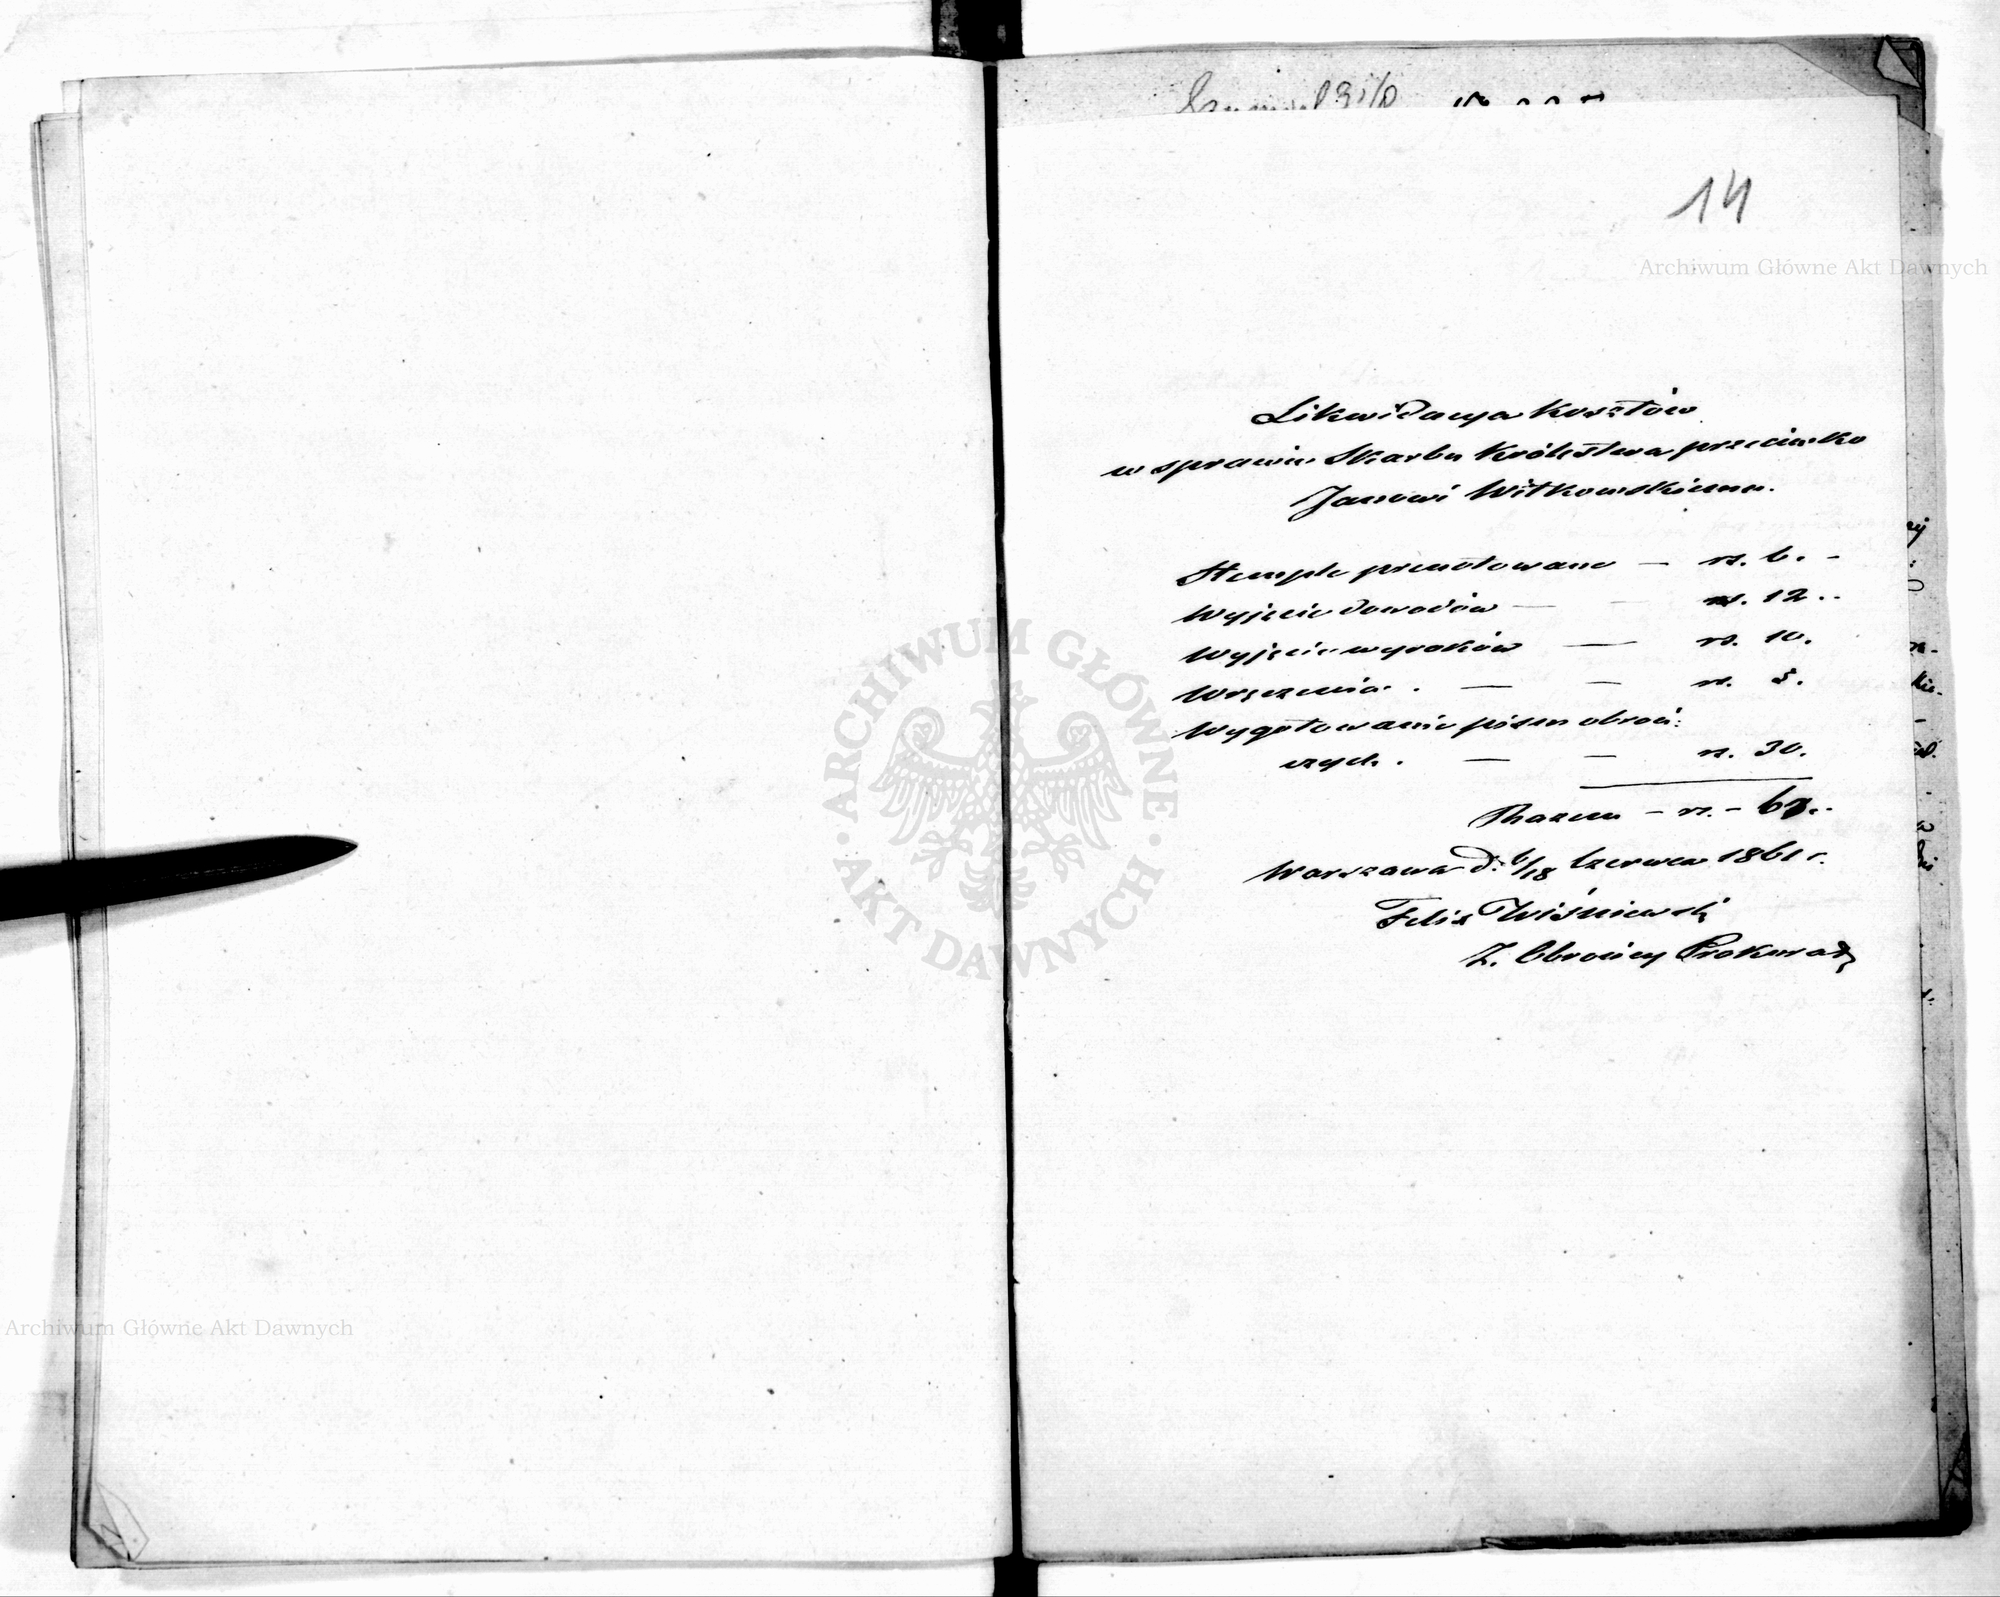 14
Archiwum Główne Akt Dawnych
Likwidacya Kosztów
w sprawie Skarbu Królestwa przeciwko
Janowi Witkowskiemu.
Stemple prenotowane — rs. 6. -
Wyjęcie dowodów — — rs. 12..
Wyjęcie wyroków — rs. 10.
Wręczenia . — — rs. 5.
Wygotowanie pism obroń:
czych . — — rs. 30.
Razem – rs. – 63..
Warszawa d. 6/18 Czerwca 1861 r.
Felix Wiśniewski
Z. Obrońcy Prokurad
ARCHIWUM GŁÓWNE
· AKT DAWNYCH ·
Archiwum Główne Akt Dawnych